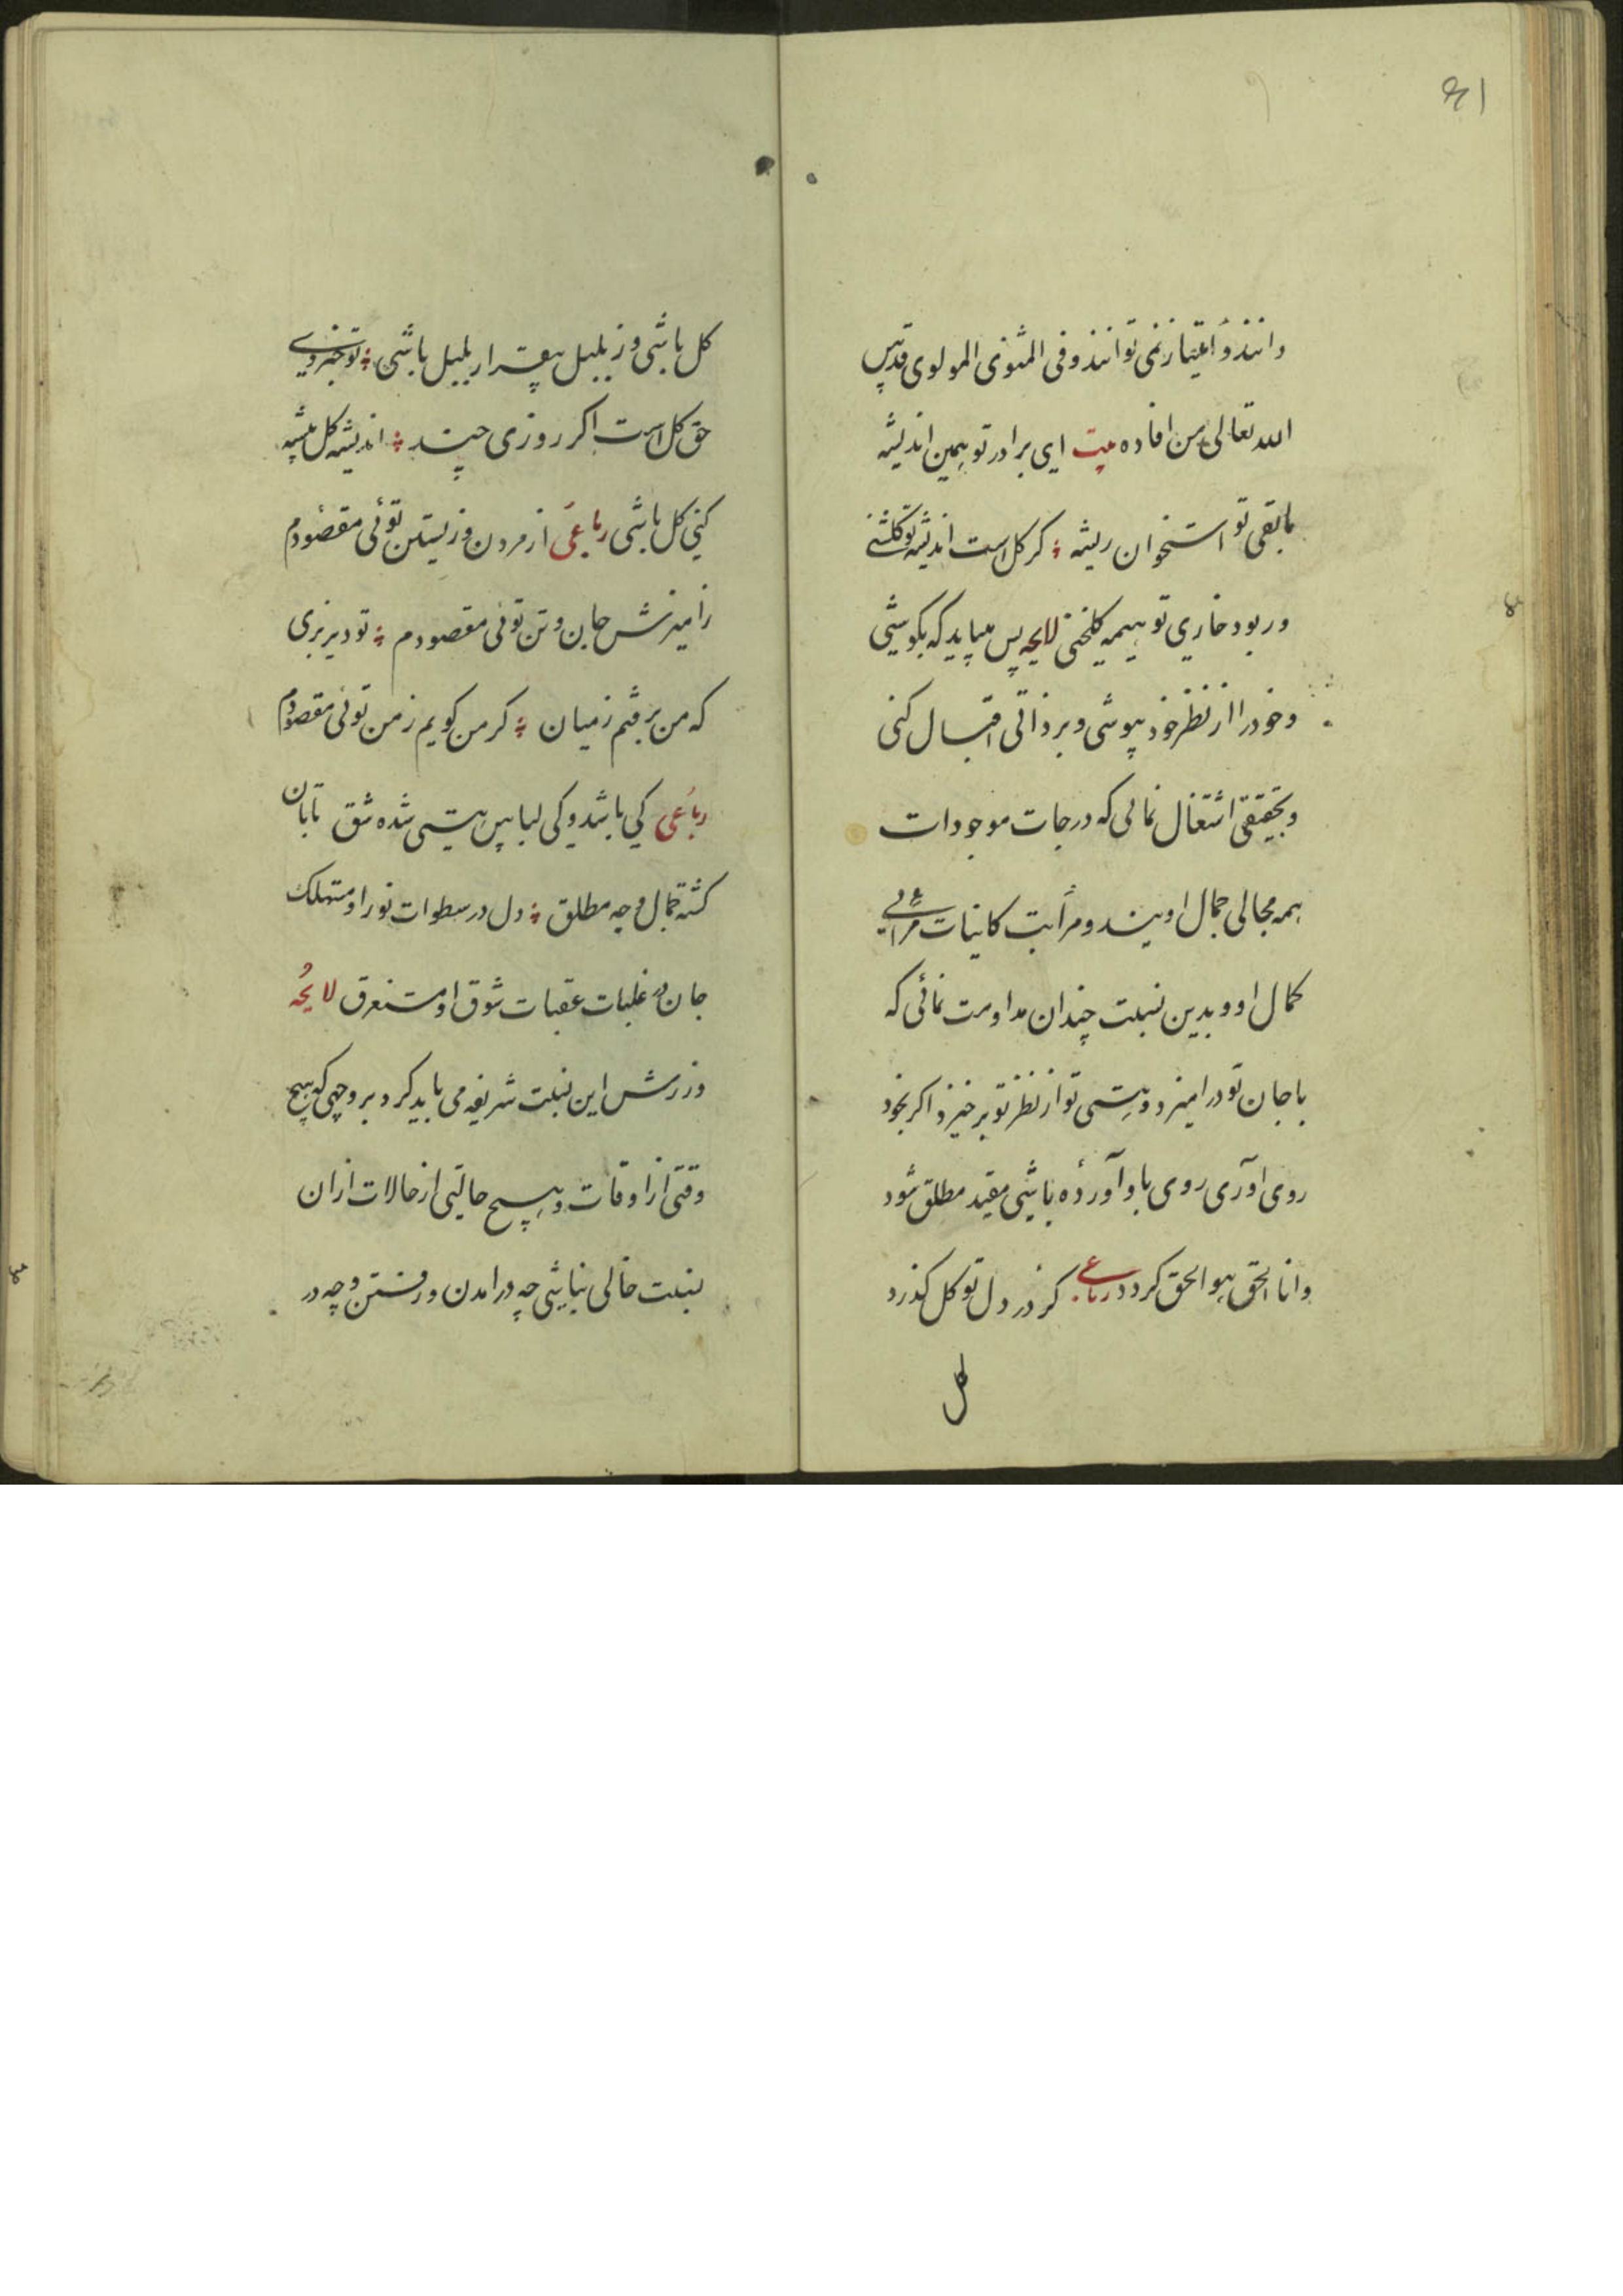 دانند و امتیاز نمی توانند و فی المثنوی المولوی قدس
الله تعالی من افاده بیت ای برادر تو همین اندیشه
مابقی تو استخوان ریشه کر کل است اندیشه تو کلشنی
ور بود خاری تو هیمه کلخنی لایحه پس میباید که بکوشی
و خود را از نظر خود بپوشی و بر ذاتی اقبال کنی
و بحقیقتی اشتغال نمائی که درجات موجودات
همه مجالی جمال اویند و مراتب کاینات مرائی
کمال او و بدین نسبت چندان مداومت نمائی که
با جان تو در امیزد و هستی تو از نظر تو برخیزد اکر بخود
روی اوری روی باو آورده باشی مقید مطلق شود
و انا الحق هو الحق کردد رباعی کر در دل تو کل کذرد
کل
کل باشی ور بلبل بیقرار بلبل باشی تو جزوی
حق کل است اکر روزی چند اندیشه کل پیشه
کنی کل باشی رباعی از مردن و زیستن توئی مقصودم
زامیزش جان و تن توئی مقصودم تو دیر بزی
که من برفتم زمیان کر من کویم ز من توئی مقصودم
رباعی کی باشد و کی لباس هستی شده شق تابان
کشته جمال وجه مطلق دل در سطوات نور او مستهلک
جان در غلبات شوق او مستغرق لایحه
ورزش این نسبت شریفه می باید کرد بر وجهی که هیچ
وقتی از اوقات و هیچ حالتی از حالات ازان
نسبت خالی نباشی چه در امدن و رفتن و چه در